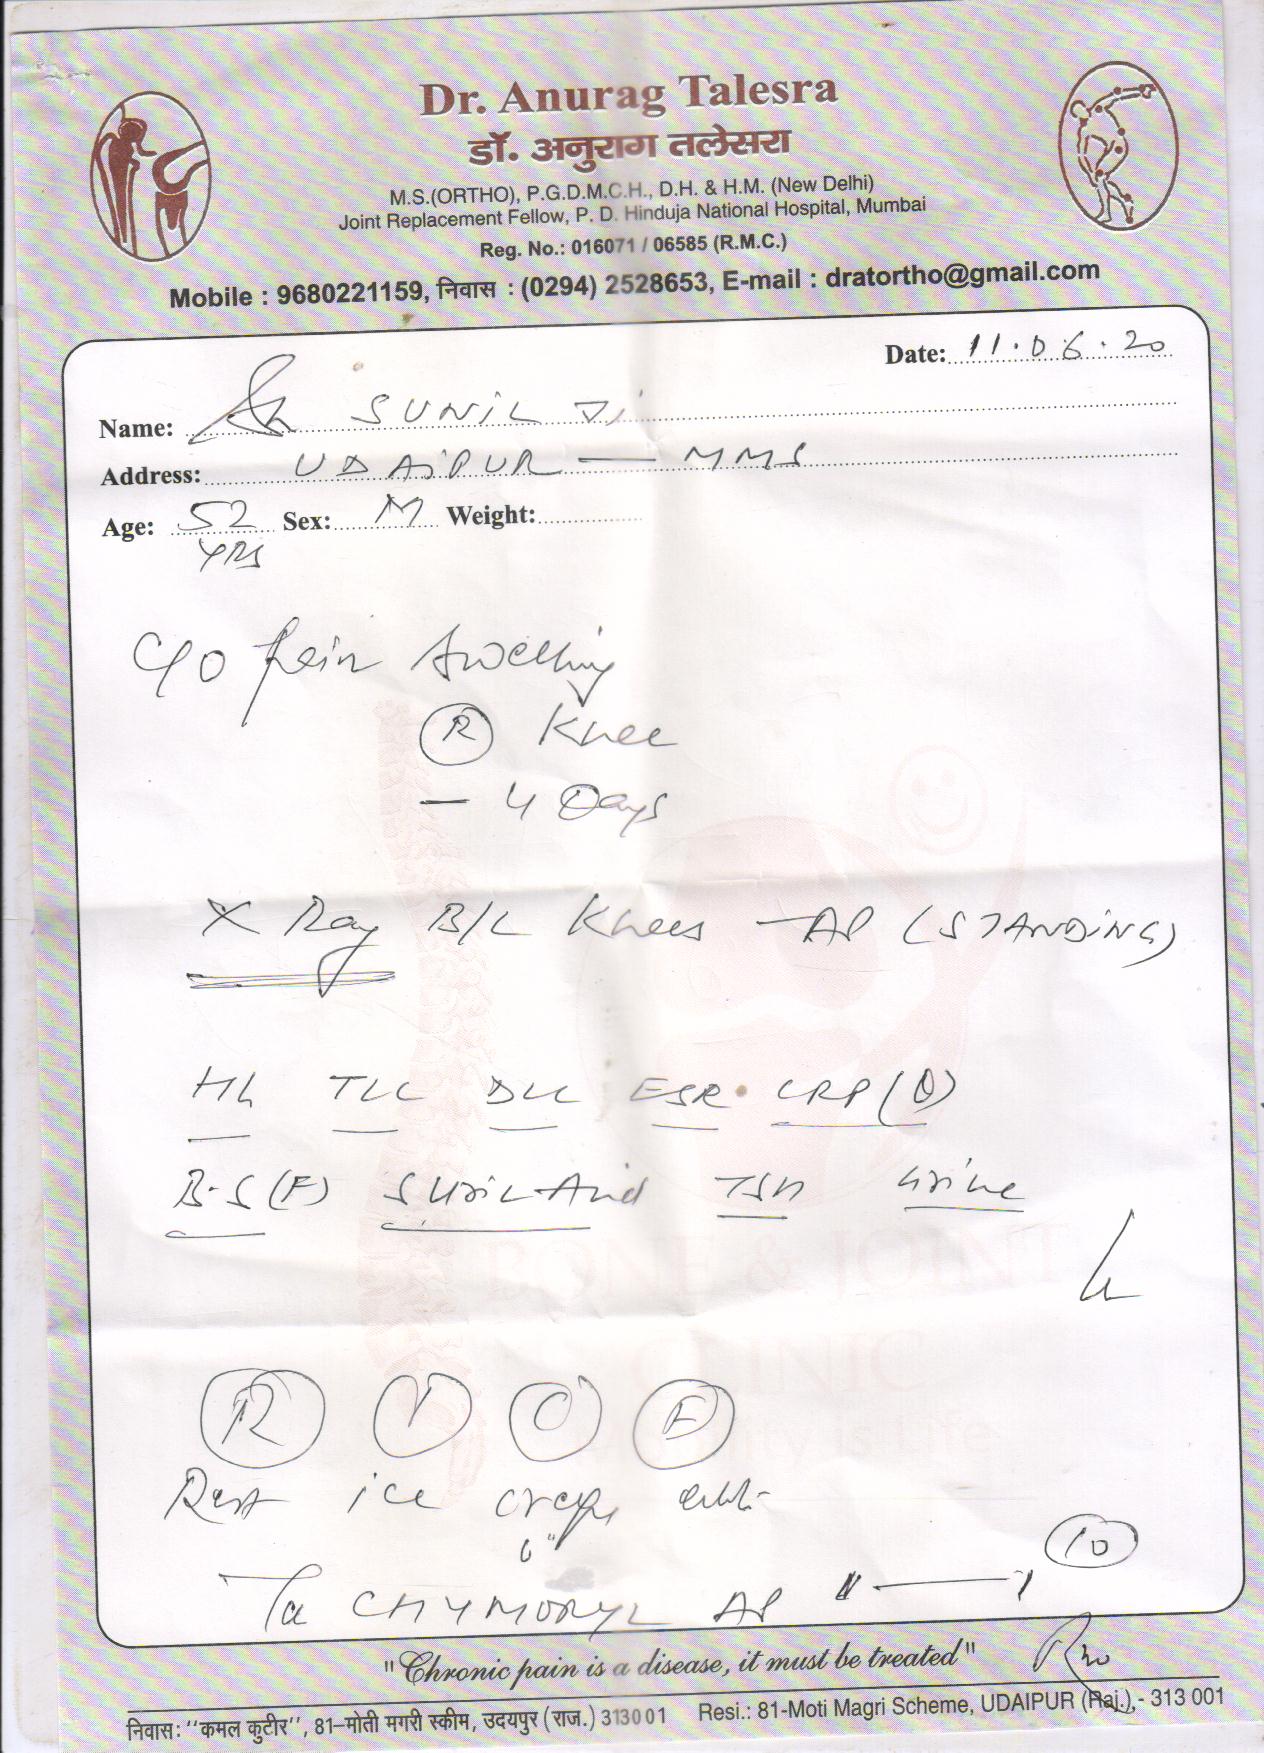 Dr. Anurag Talesra
डॉ. अनुराग तलेसरा
M.S.(ORTHO), P.G.D.M.C.H., D.H. & H.M. (New Delhi)
Joint Replacement Fellow, P. D. Hinduja National Hospital, Mumbai
Reg. No.: 016071 / 06585 (R.M.C.)
Mobile : 9680221159, निवास : (0294) 2528653, E-mail : dratortho@gmail.com
Date: 11.06.20
Name: SUNIL Ji
Address: UDAIPUR — MMS
Age: 52 Sex: M Weight:
YRS
C/O Pain Swelling
R Knee
— 4 Days
X Ray B/L Knees — AP (STANDING)
Hb TLC DLC ESR CRP (Q)
B.S (F) S Uric Acid TSH Urine
R I C E
Rest ice crepe
6"
Ta CHYMORAL AP 10
"Chronic pain is a disease, it must be treated"
निवास: "कमल कुटीर", 81–मोती मगरी स्कीम, उदयपुर (राज.) 313001 Resi.: 81-Moti Magri Scheme, UDAIPUR (Raj.),- 313 001
BONE & JOINT
CLINIC